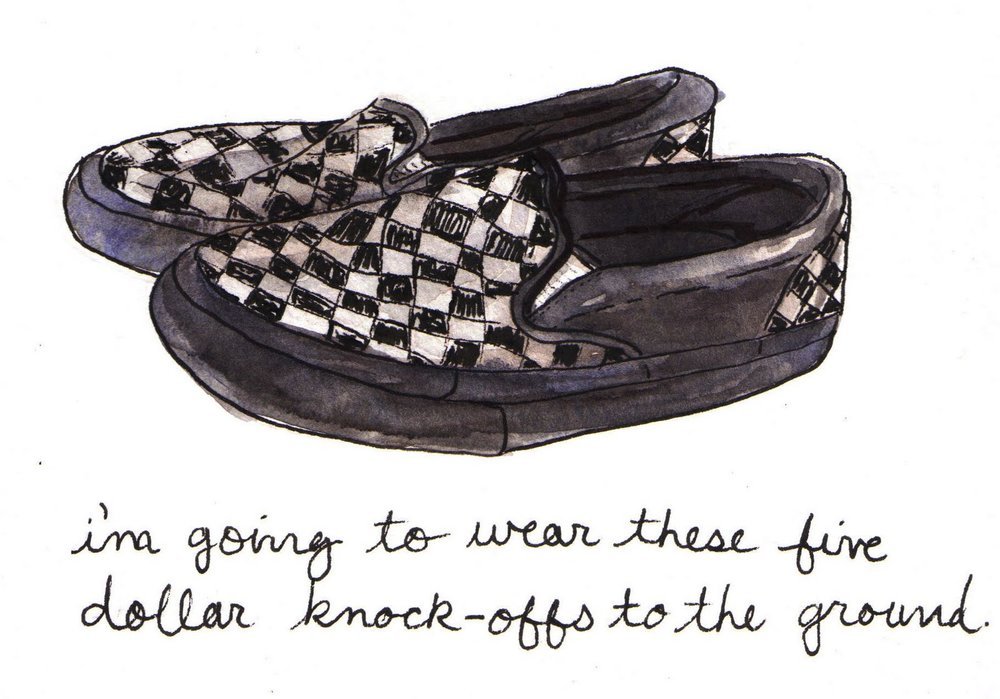 i'm going to wear these five
dollar knock-offs to the ground.